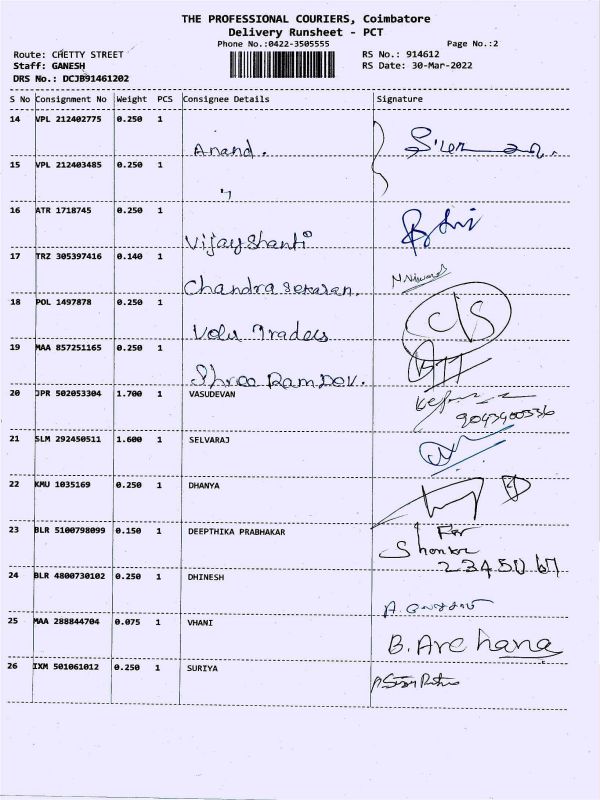 THE PROFESSIONAL COURIERS, Coimbatore
Delivery Runsheet - PCT
Phone No.:0422-3505555 Page No.:2
Route: CHETTY STREET RS No.: 914612
Staff: GANESH RS Date: 30-Mar-2022
DRS No.: DCJB91461202
S No Consignment No Weight PCS Consignee Details Signature
14 VPL 212402775 0.250 1
Anand.
15 VPL 212403485 0.250 1
"
16 ATR 1718745 0.250 1
Vijay Shanti
17 TRZ 305397416 0.140 1
Chandra sekaran.
18 POL 1497878 0.250 1
Traders
19 MAA 857251165 0.250 1
Shree Ram Dev.
20 JPR 502053304 1.700 1 VASUDEVAN
9043400536
21 SLM 292450511 1.600 1 SELVARAJ
22 KMU 1035169 0.250 1 DHANYA
23 BLR 5100798099 0.150 1 DEEPTHIKA PRABHAKAR
For
24 BLR 4800730102 0.250 1 DHINESH
25 MAA 288844704 0.075 1 VHANI
B. Archana
26 IXM 501061012 0.250 1 SURIYA